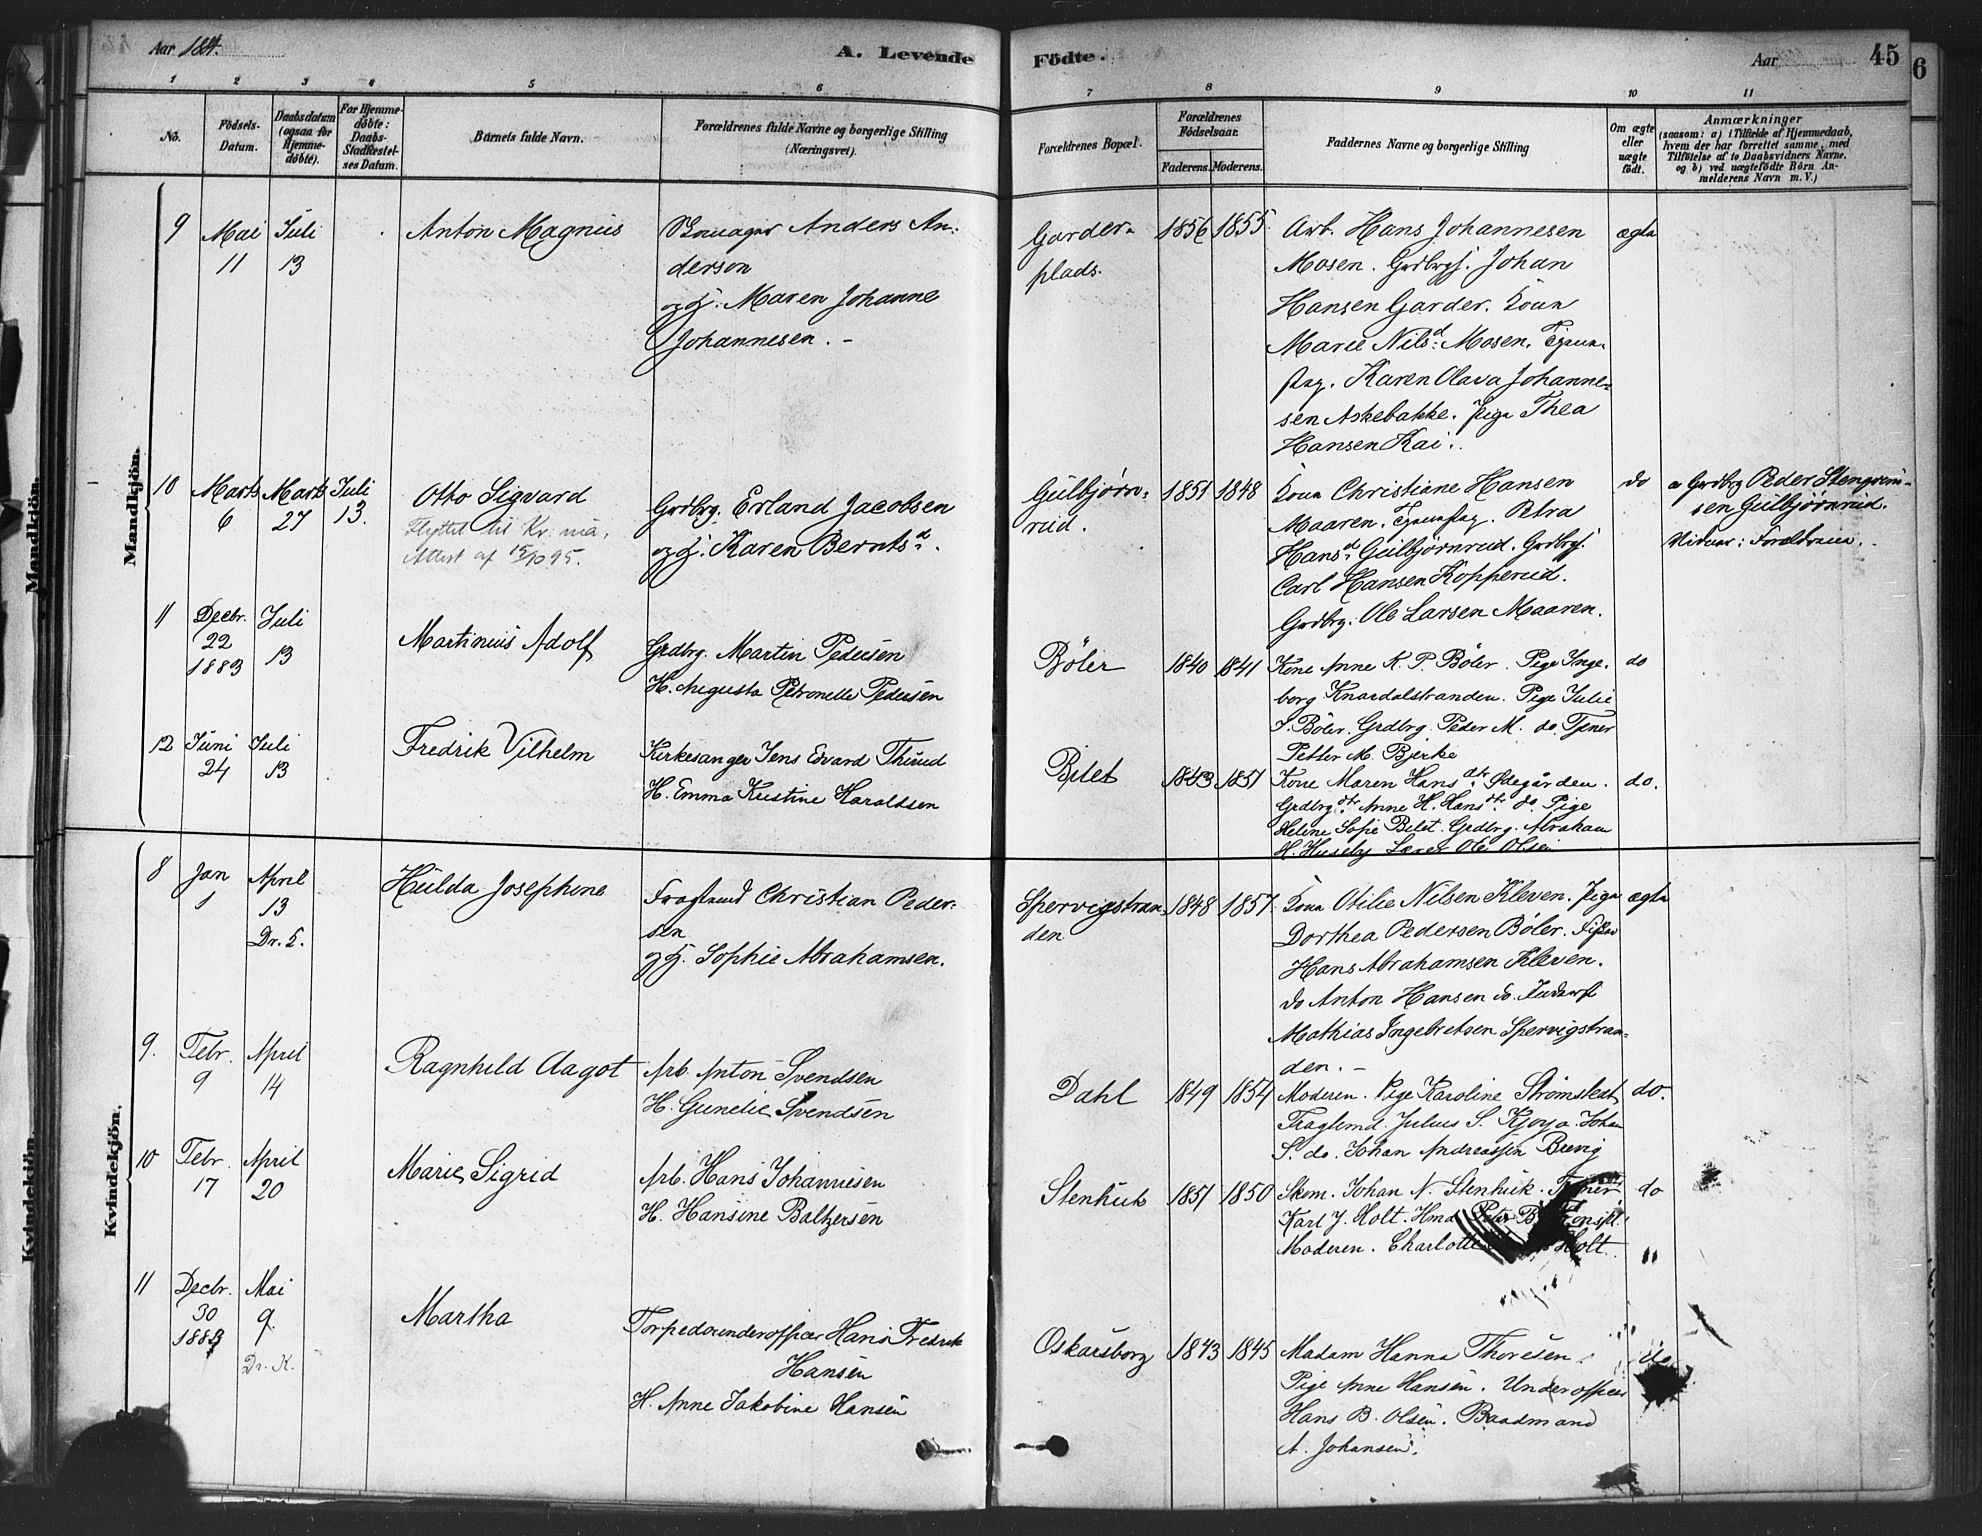 Aar 1884.
A. Levende
Födte.
Aar
45
6
1 2 3 4 5 6 7 8 9 10 11
No.
Födsels-
Datum.
Daabsdatum
(ogsaa for
Hjemme-
døbte).
For Hjemme-
døbte:
Daabs-
Stadfæstel-
ses Datum.
Barnets fulde Navn.
Forældrenes fulde Navne og borgerlige Stilling
(Næringsvei).
Forældrenes Bopæl.
Forældrenes
Födselsaar.
Faderens. Moderens.
Faddernes Navne og borgerlige Stilling
Om ægte
eller
uægte
födt.
Anmærkninger
(saasom: a) i Tilfælde af Hjemmedaab,
hvem der har forrettet samme, med
Tilföielse af to Daabsvidners Navne,
og b) ved uægtefödte Börn An-
melderens Navn m. V.)
Mandkjön.
9
Mai
11
Juli
13
Anton Magnus
Anders An-
derson
og H. Maren Johanne
Johannesen. -
Garder-
plads.
1856 1855
Arb. Hans Johannesen
Mosen. Grdbrgs. Johan
Hansen Garder. Kona
Marie Nilsd. Mosen. Tjenes-
pag. Karen Olava Johanne-
sen Askebakke. Pige Thea
Hansen Kai.
ægte
10
Marts
6
Marts
27
Juli
13.
Otto Sigvard
Flyttet til Kr.nia,
Attest af 15/10 95.
Grdbrg. Erland Jacobsen
og H. Karen Berntsd.
Gulbjørn-
rud.
1851 1848
Kona Christiane Hansen
Maaren. Petra
Hansd. Gulbjørnrud. Grdbrgs.
Carl Hansen Kopperud.
Grdbrg. Ole Larsen Maaren.
do
a Grdbrg Peder
sen Gulbjørnrud.
Vidner: Forældrene.
11
Decbr.
22
1883
Juli
13
Martinius Adolf
Grdbrg. Martin Pedersen
H. Augusta Petronelle Pedersen
Bøler
1840 1841
Kone Anne K. P. Bøler. Pige Inge-
borg Knardalstranden. Pige Julie
S. Bøler. Grdbrg. Peder M. do. Tjener
Petter M. Bjerke
do
12
Juni
24
Juli
13
Fredrik Vilhelm
Kirkesanger Jens Edvard Thrud
H. Emma Kristine Haraldsen
Belet
1843 1851
Kone Maren Hansdtr. Ødegården.
Grdbrgdtr. Anne H. Hansdtr. do. Pige
Helene Sofie Belet. Grdbrg. Abraham
H. Huseby Lærer Ole Olsen
do.
Kvindekjön.
8
Jan
1
April
13
Dr. 5.
Hulda Josephine
Fragtmd Christian Peder-
sen
og H. Sophie Abrahamsen.
Spervigstran
den
1848 1857
Kona Otilie Nilsen Kleven. Pige
Dorthea Pedersen Bøler. Fisker
Hans Abrahamsen Kleven.
do Anton Hansen do. Inderst
Mathias Ingebretsen Spervigstran-
den. -
ægte
9.
Febr.
9
April
14
Ragnhild Aagot
Arb. Anton Svendsen
H. Gunelie Svendsen
Dahl
1849 1854
Moderen. Pige Karoline Strømstedt
Fragtemd. Julius S. Kjoya. Johan
S. do. Johan Andreassen Brevig
do.
10
Febr.
17
April
20
Marie Sigrid
Arb. Hans Johannesen
H. Hansine Baltzersen
Stenhuk
1851 1850
Skom. Johan N. Stenhuk. Tjener
Karl J. Holt. Hmd Peter
Moderen. Charlotte Holt.
do
11
Decbr.
30
1883
Mai
9
Dr. K.
Martha
Torpedounderofficer Hans Fredrik
Hansen
H. Anne Jakobine Hansen
Oskarsborg
1843 1845
Madam Hanna Thoresen.
Pige Anne Hansen. Underofficer
Hans B. Olsen. Baadmand
A. Johansen.
do